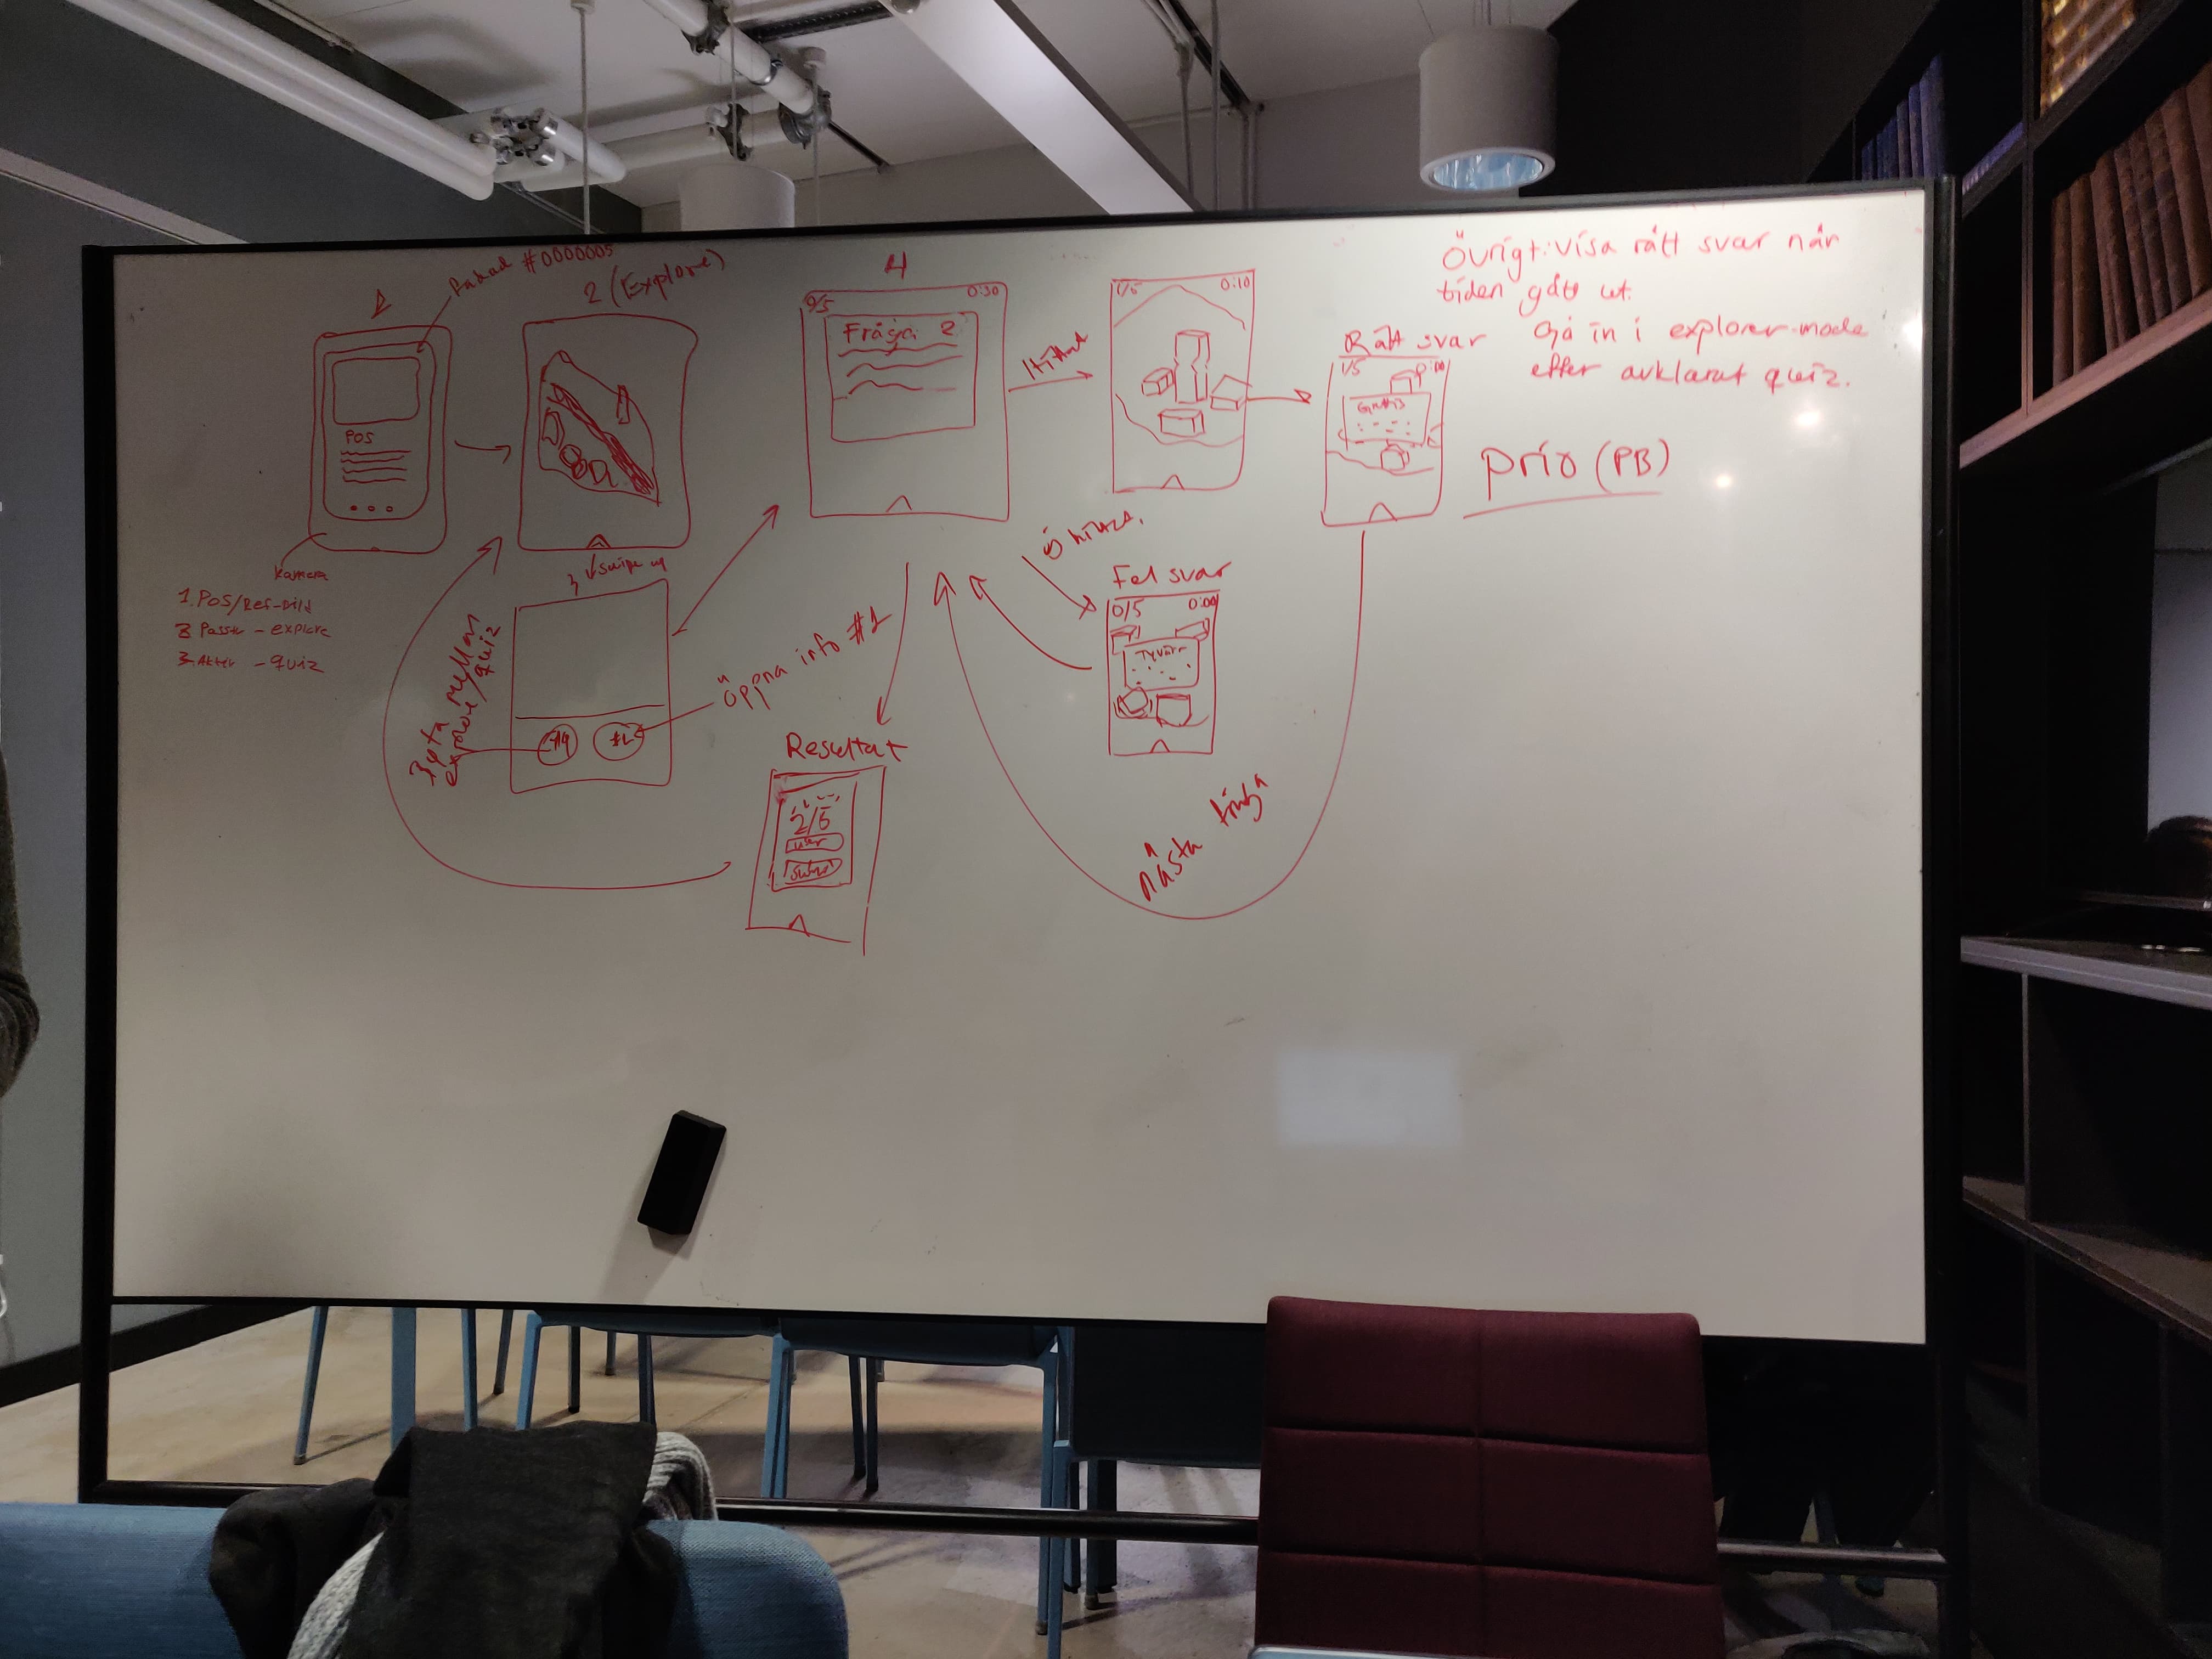 #0000005
1
2 (Explore)
POS
kamera
1. POS/Ref-bild
2 Passiv - explore
3. Aktiv - quiz
3 swipe up
Byta mellan
explore/quiz
#1
öppna info #1
4
0/5 0:30
Fråga 2
Hittad
1/5 0:10
Rätt svar
1/5 0:00
Grattis
Ej hittad.
Fel svar
0/5 0:00
Tyvärr
nästa fråga
Resultat
2/5
Övrigt: Visa rätt svar när
tiden gått ut.
Gå in i explorer-mode
efter avklarat quiz.
prio (PB)